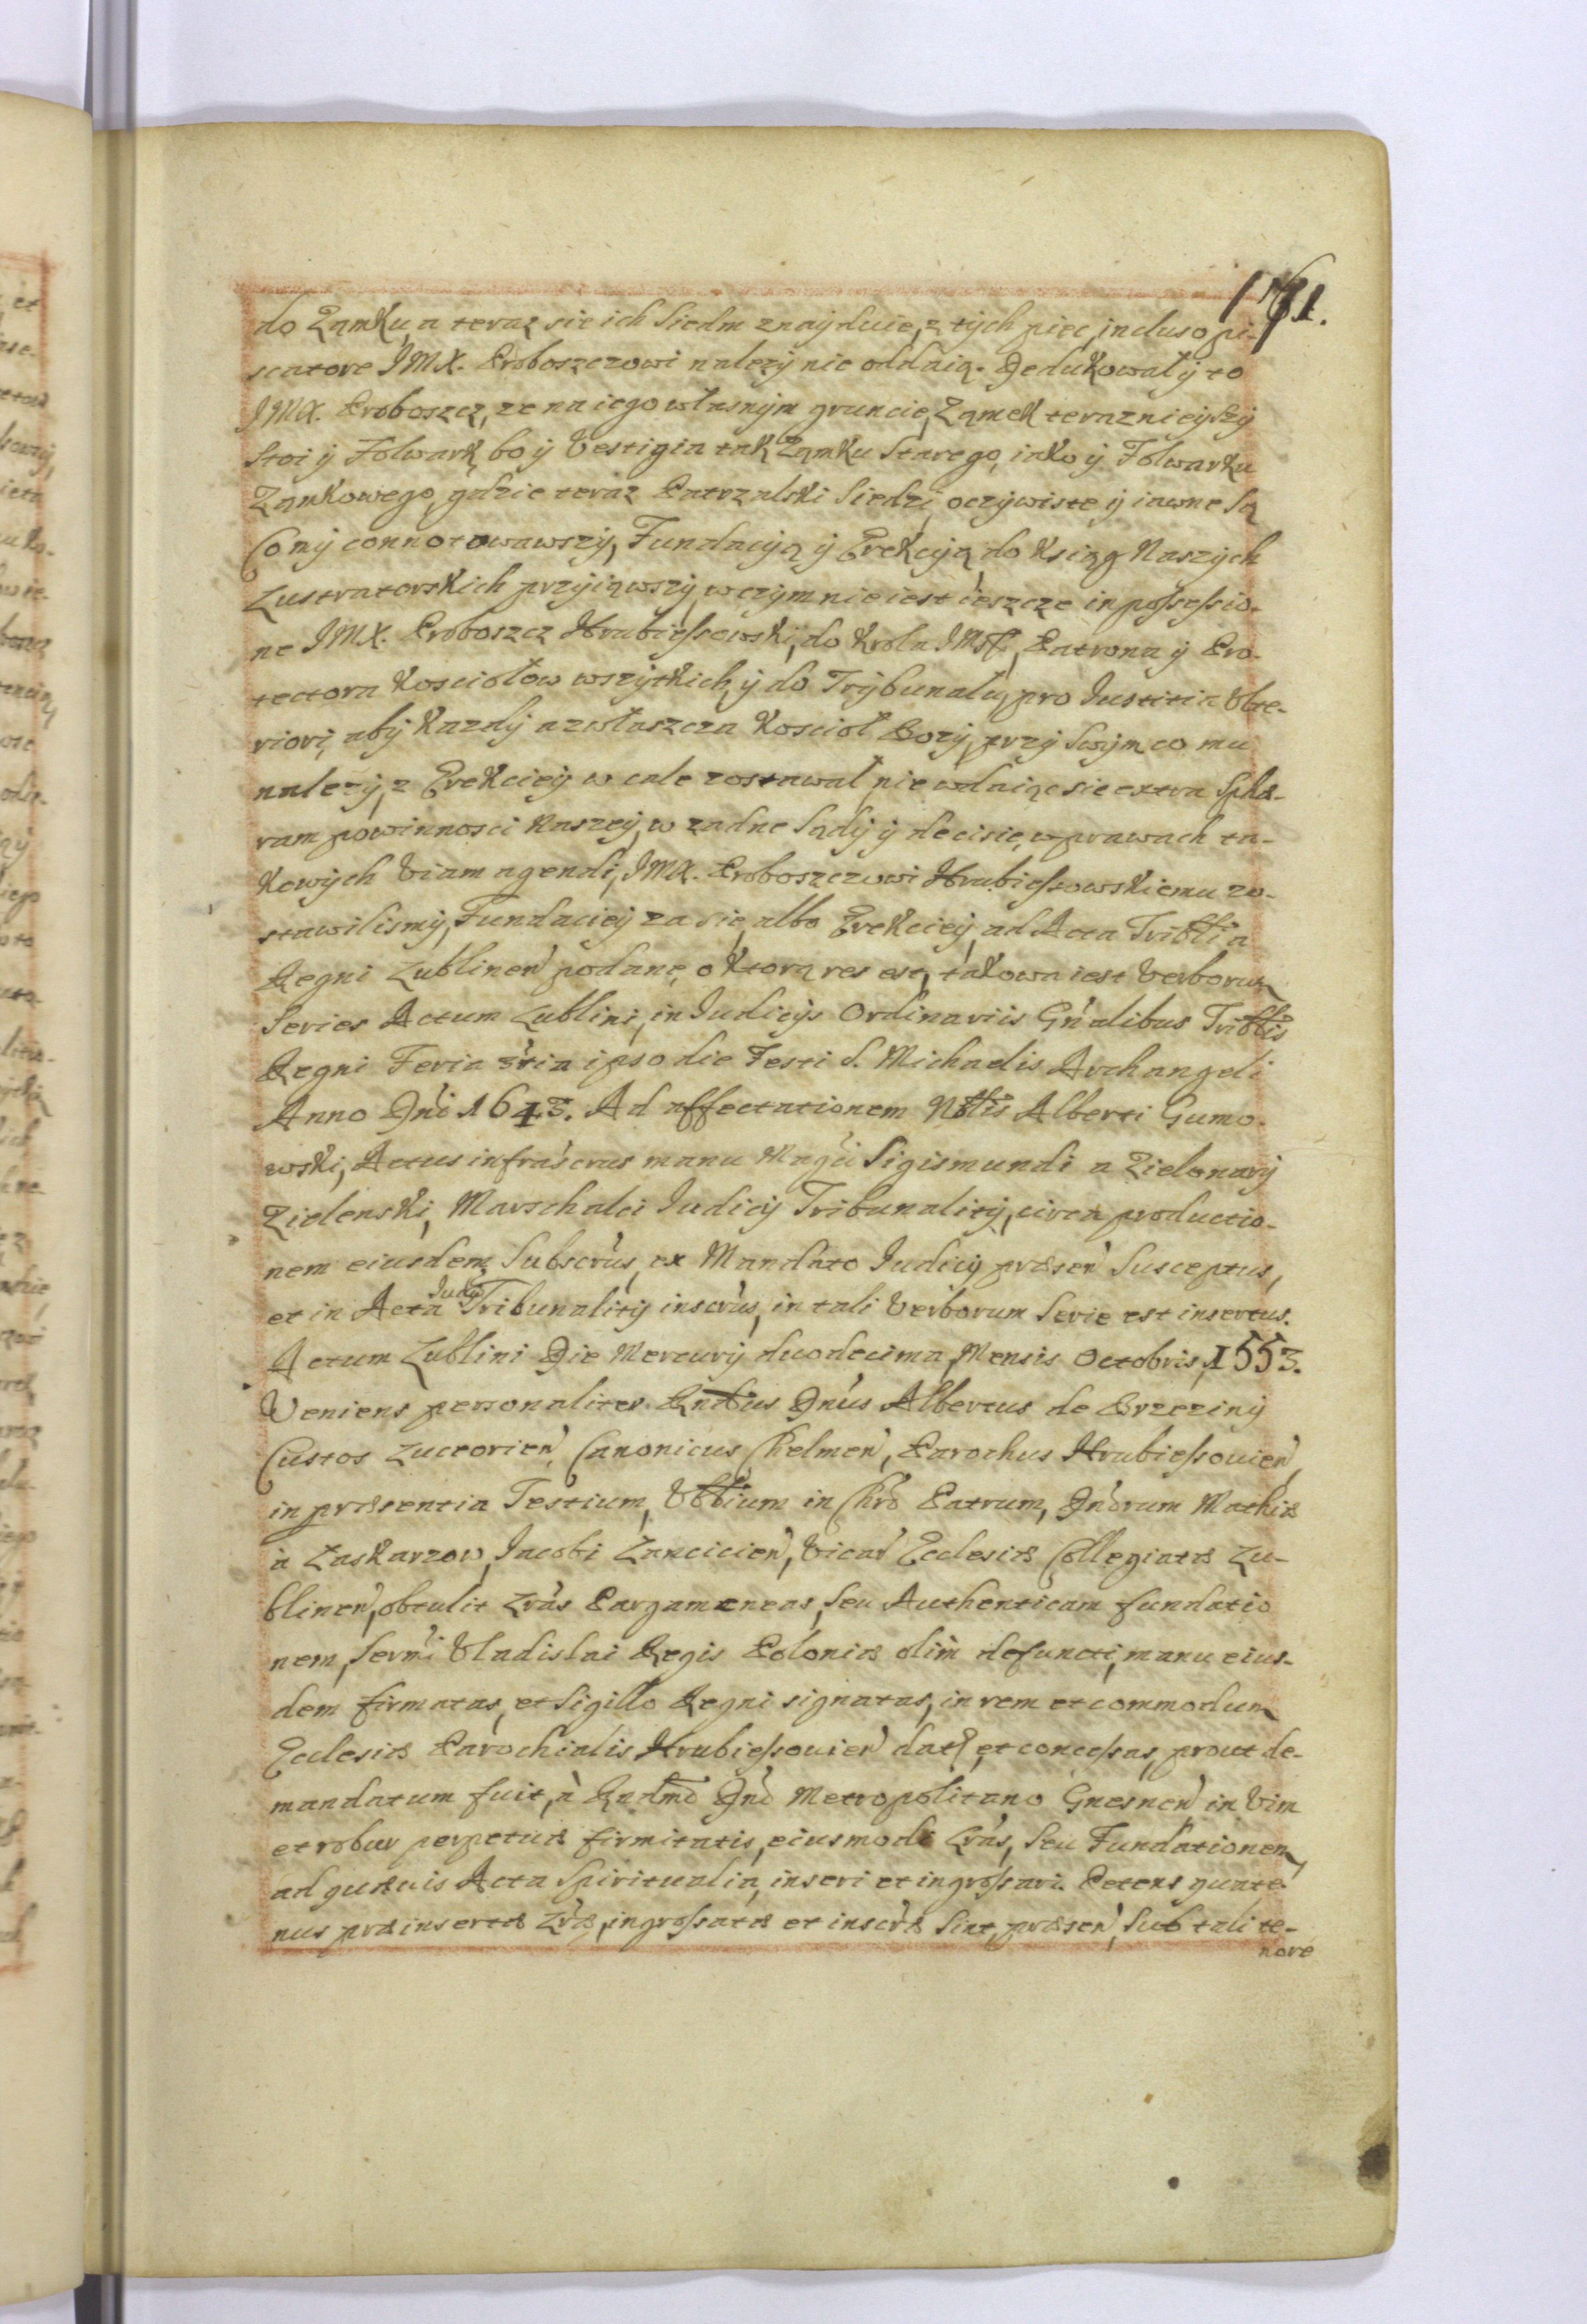 161.
do Ząmku, a teraz sie ich Siedm znayduie, z tych pięc, incluso pi-
scatore JMX. Proboszczowi nalezy nie oddaią. Dedukował y to
JMX. Proboszcz, ze na iego własnym gruncie, Ząmek teraznieyszy
Stoi y Folwark, bo y Vestigia tak Ząmku Starego, iako y Folwarku
Ząmkowego, gdzie teraz Patrzalski Siedzi, oczywiste y iawne Są
Co my connotowawszy, Fundacyią y Erekcyią do Ksiąg Naszych
Lustratorskich przyiąwszy, w czym nie iest ieszcze in possessio-
ne JMX. Proboszcz Hrubieszowski, do Krola JMsci, Patrona y Pro-
tectora Kosciołow wszytkich, y do Trybunału, pro Iustitia Vlte-
riori, aby kazdy a zwłaszcza Koscioł Bozy, przy Swym co mu
nalezy, z Erekciey w cale zostawał, nie wdaiąc sie extra Sphæ-
ram powinnosci Naszey, w zadne Sądy y decisie, w prawach ta-
kowych Viam agendi, JMX. Proboszczowi Hrubieszowskiemu zo-
stawilismy, Fundaciey zasię, albo Erekciey, ad Acta Tribtia
Regni Lublinen podaney, o ktorą res est, takowa iest Verborum
Series Actum Lublini, in Iudicijs Ordinariis Gnalibus Tribtis
Regni Feria 3tia ipso die Festi S. Michaelis Archangeli
Anno Dni 1643. Ad affectationem Nbtis Alberti Gumo-
wski, Actus infrascrus manu Magci Sigismundi a Zielonary
Zielenski, Marschalci Iudicij Tribunalitij, circa productio-
nem eiusdem Subscrus, ex Mandato Iudicij præsen Susceptus,
et in Acta Iudij Tribunalitij inscrus, in tali Verborum Serie est insertus.
Actum Lublini Die Mercurij duodecima Mensis Octobris, 1553.
Veniens personaliter Rndus Dnus Albertus de Brzeziny
Custos Luceorien, Canonicus Chelmen, Parochus Hrubiessouien,
in præsentia Testium, Vbtium in Chro Patrum, Dnorum Mathiæ
a Laskarzow, Iacobi Lancicien, Vicar Ecclesiæ Collegiatæ Lu-
blinen, obtulit Lras Pargameneas, Seu Authenticam fundatio
nem, Sermi Vladislai Regis Poloniæ olim defuncti, manu eius-
dem firmatas, et Sigillo Regni signatas, in rem et commodum
Ecclesiæ Parochialis Hrubiessouien dat, et concessas, prout de-
mandatum fuit, à Rndmo Dno Metropolitano Gnesnen in Vim
et robur perpetuæ firmitatis, eiusmodi Lras, Seu Fundationem,
ad quæuis Acta Spiritualia, inseri et ingrossari. Petens quate
nus præinsertæ Lræ, ingrossatæ et inscræ Sint, præsen, Sub tali te-
nore